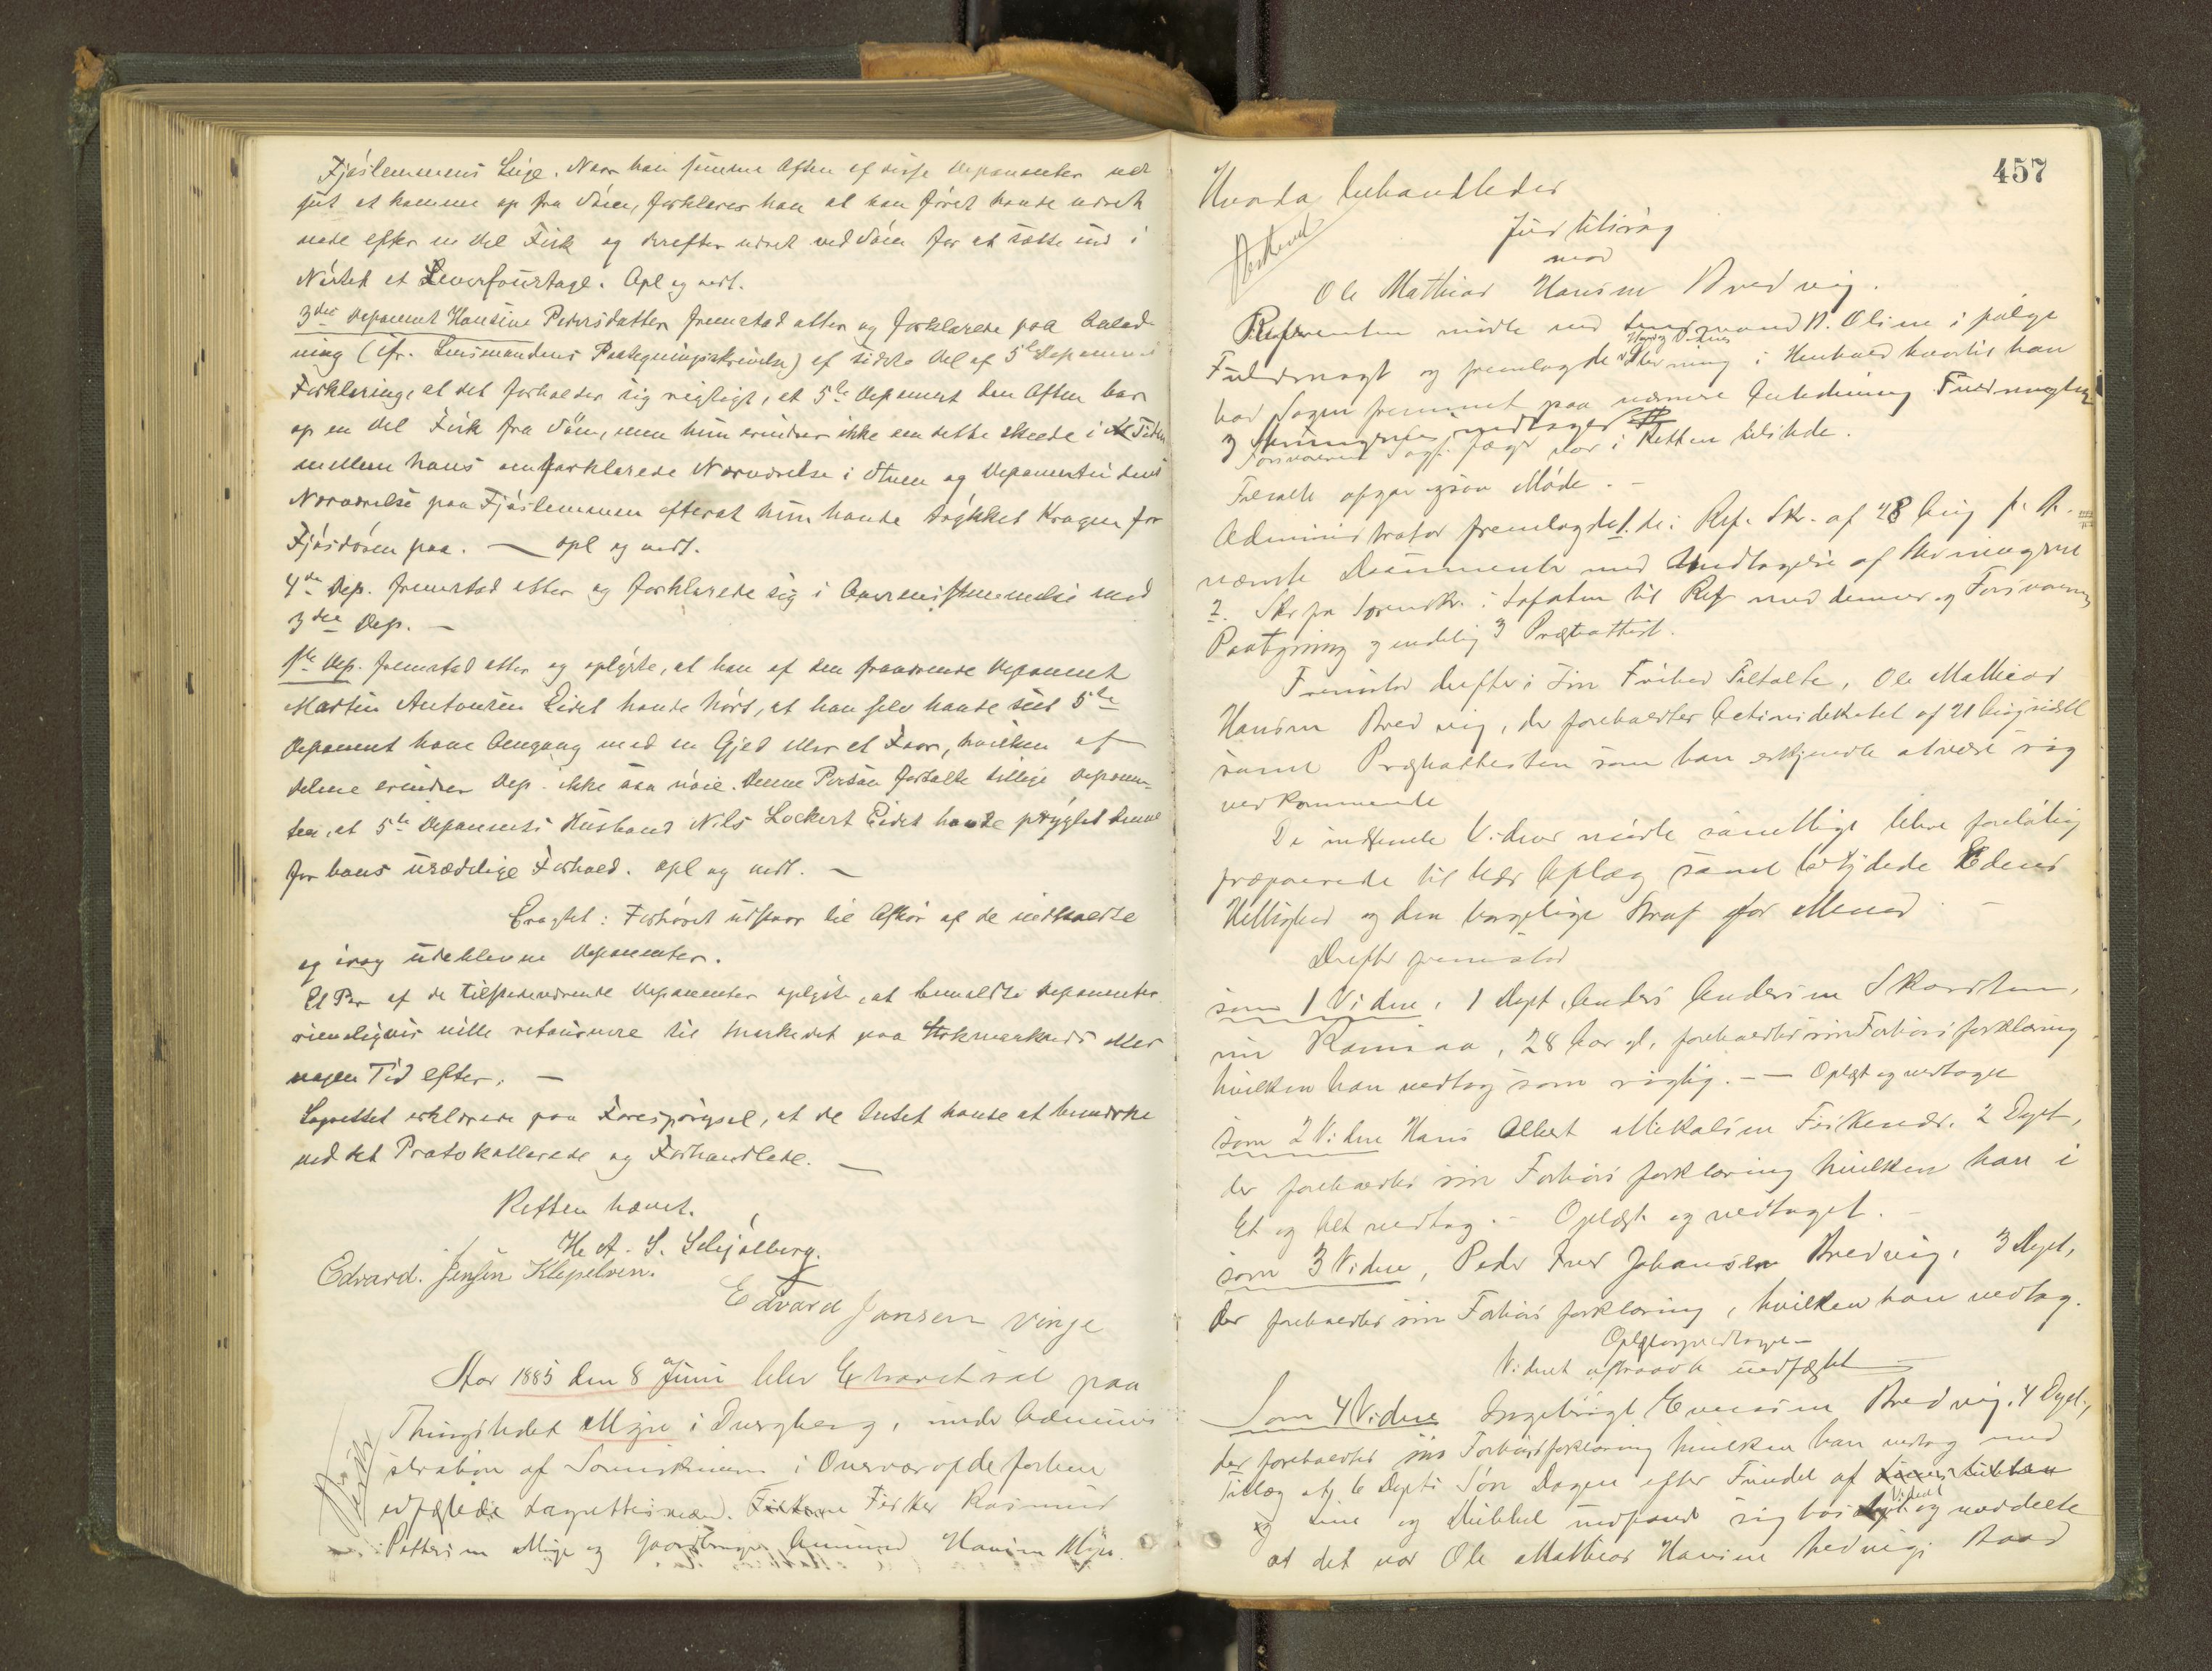 Fjøslemmens Luge. Naar han samme Aften af disse Deponenter var
set at komme op fra Søen, forklarer han at han først havde været
nede efter en Del Fisk og derefter været ved Søen for at sætte ind i
Nøstet et Leverfoustage. Opl og vedt.
3die Deponent Hansine Pedersdatter fremstod atter og forklarede paa Anled-
ning (cfr. Lensmandens Paategningsskrivelse) af sidste Del af 5te Deponents
Forklaring, at det forholder sig rigtigt, at 5te Deponent den Aften bar
op en Del Fisk fra Søen, men hun erindrer ikke om dette skeede i Tiden
mellem hans omforklarede Nærværelse i Stuen og Deponentindens
Nærværelse paa Fjøslemmen efterat hun havde trykket Krogen for
Fjøsdøren paa. — opl og vedt.
4de Dep. fremstod atter og forklarede sig i Overensstemmelse med
3die Dep. —
1ste Dep. fremstod atter og oplyste, at han af den fraværende Deponent
Martin Antonsen Eidet havde hørt, at han selv havde seet 5te
Deponent have Omgang med en Gjed eller et Faar, hvilken af
Delene erindrer Dep. ikke saa nøie. Denne Person fortalte tillige Deponen-
ten, at 5te Deponents Husbond Nils Lockert Eidet havde pryglet denne
for hans usædelige Forhold. opl og vedt. —
Eragtet: Forhøret udstaar til Afhør af de indkaldte
og idag udeblevne Deponenter.
Et Par af de tilstedeværende Deponenter oplyste, at bemeldte Deponenter
rimeligvis ville retournere til Markedet paa Stokmarknæs eller
nogen Tid efter. —
Lagrettet erklærede paa Forespørgsel, at de Intet havde at bemærke
ved det Protokollerede og Forhandlede. —
Retten hævet.
H. A. S. Schjølberg.
Edvard. Jensen Klepelven.
Edvard Jansen Vinje
Aar 1885 den 8 Juni blev Extraretsat paa
Thingstedet Myre i Dverberg, under Adminis
stration af Sorenskriveren i Overvær af de forhen
edfæstede Lagrettesmænd. Fisker Rasmus
Pettersen Myre og Gaardbruger Amund Hansen Myre.
457
Hvorda behandledes
Justitssag
mod
Ole Mathias Hansen Bredvig.
Referenten mødte ved Lensmand N. Olsen i følge
Fuldmagt og fremlagde Stevning i Henhold hvortil han
bad Sagen fremmet paa nærmere Anledning Fuldmagten
Forsvareren Sagf. var i Retten tilstede.
Tiltalte afgav ogsaa Møde. —
Administrator fremlagde 1. de i Ref. Skr. af 28 Aug f. A.
nævnte Documenter med Undtagelse af Stevningen
2. Skr fra Sorenskr. i Lofoten til Ref med dennes og Forsvarers
Paategning og endelig 3 Præsteattest.
Fremstod derefter i sin Frihed Tiltalte, Ole Mathias
Hansen Bredvig, der foreholdtes Actionsdekretet af 21 Aug sidstl
samt Præsteattesten som han erkjendte at være sig
vedkommende
De indstevnte Vidner mødte samtlige bleve foreløbig
præparerede til Eds Aflæg samt betydede Edens
Hellighed og den borgerlige Straf for Mened. —
Derefter fremstod
som 1 Vidne, 1 Dept, Anders Andersen Skarsten,
nu Ramsaa, 28 Aar gl, foreholdtes sin Forhørsforklaring
hvilken han vedtog som rigtig. — Oplæst og vedtaget
som 2 Vidne Hans Albert Mikalsen Fiskenæs. 2 Dept,
der foreholdtes sin Forhørsforklaring hvilken han i
Et og Alt vedtog. — Oplæst og vedtaget. —
som 3 Vidne, Peder Iver Johansen Bredvig, 3 Dept,
der foreholdtes sin Forhørsforklaring, hvilken han vedtog.
Oplæst og vedtaget —
Vidnet aftraadte uedfæstet —
Som 4 Vidne Ingebrigt Evensen Bredvig. 4 Dept.,
der foreholdtes sin Forhørsforklaring hvilken han vedtog med
Tillæg at 6 Depts Søn Dagen efter Fundet af
Line og Dubbel indfandt sig hos Vidnet og meddelte
at det var Ole Mathias Hansen Bredvigs Baad